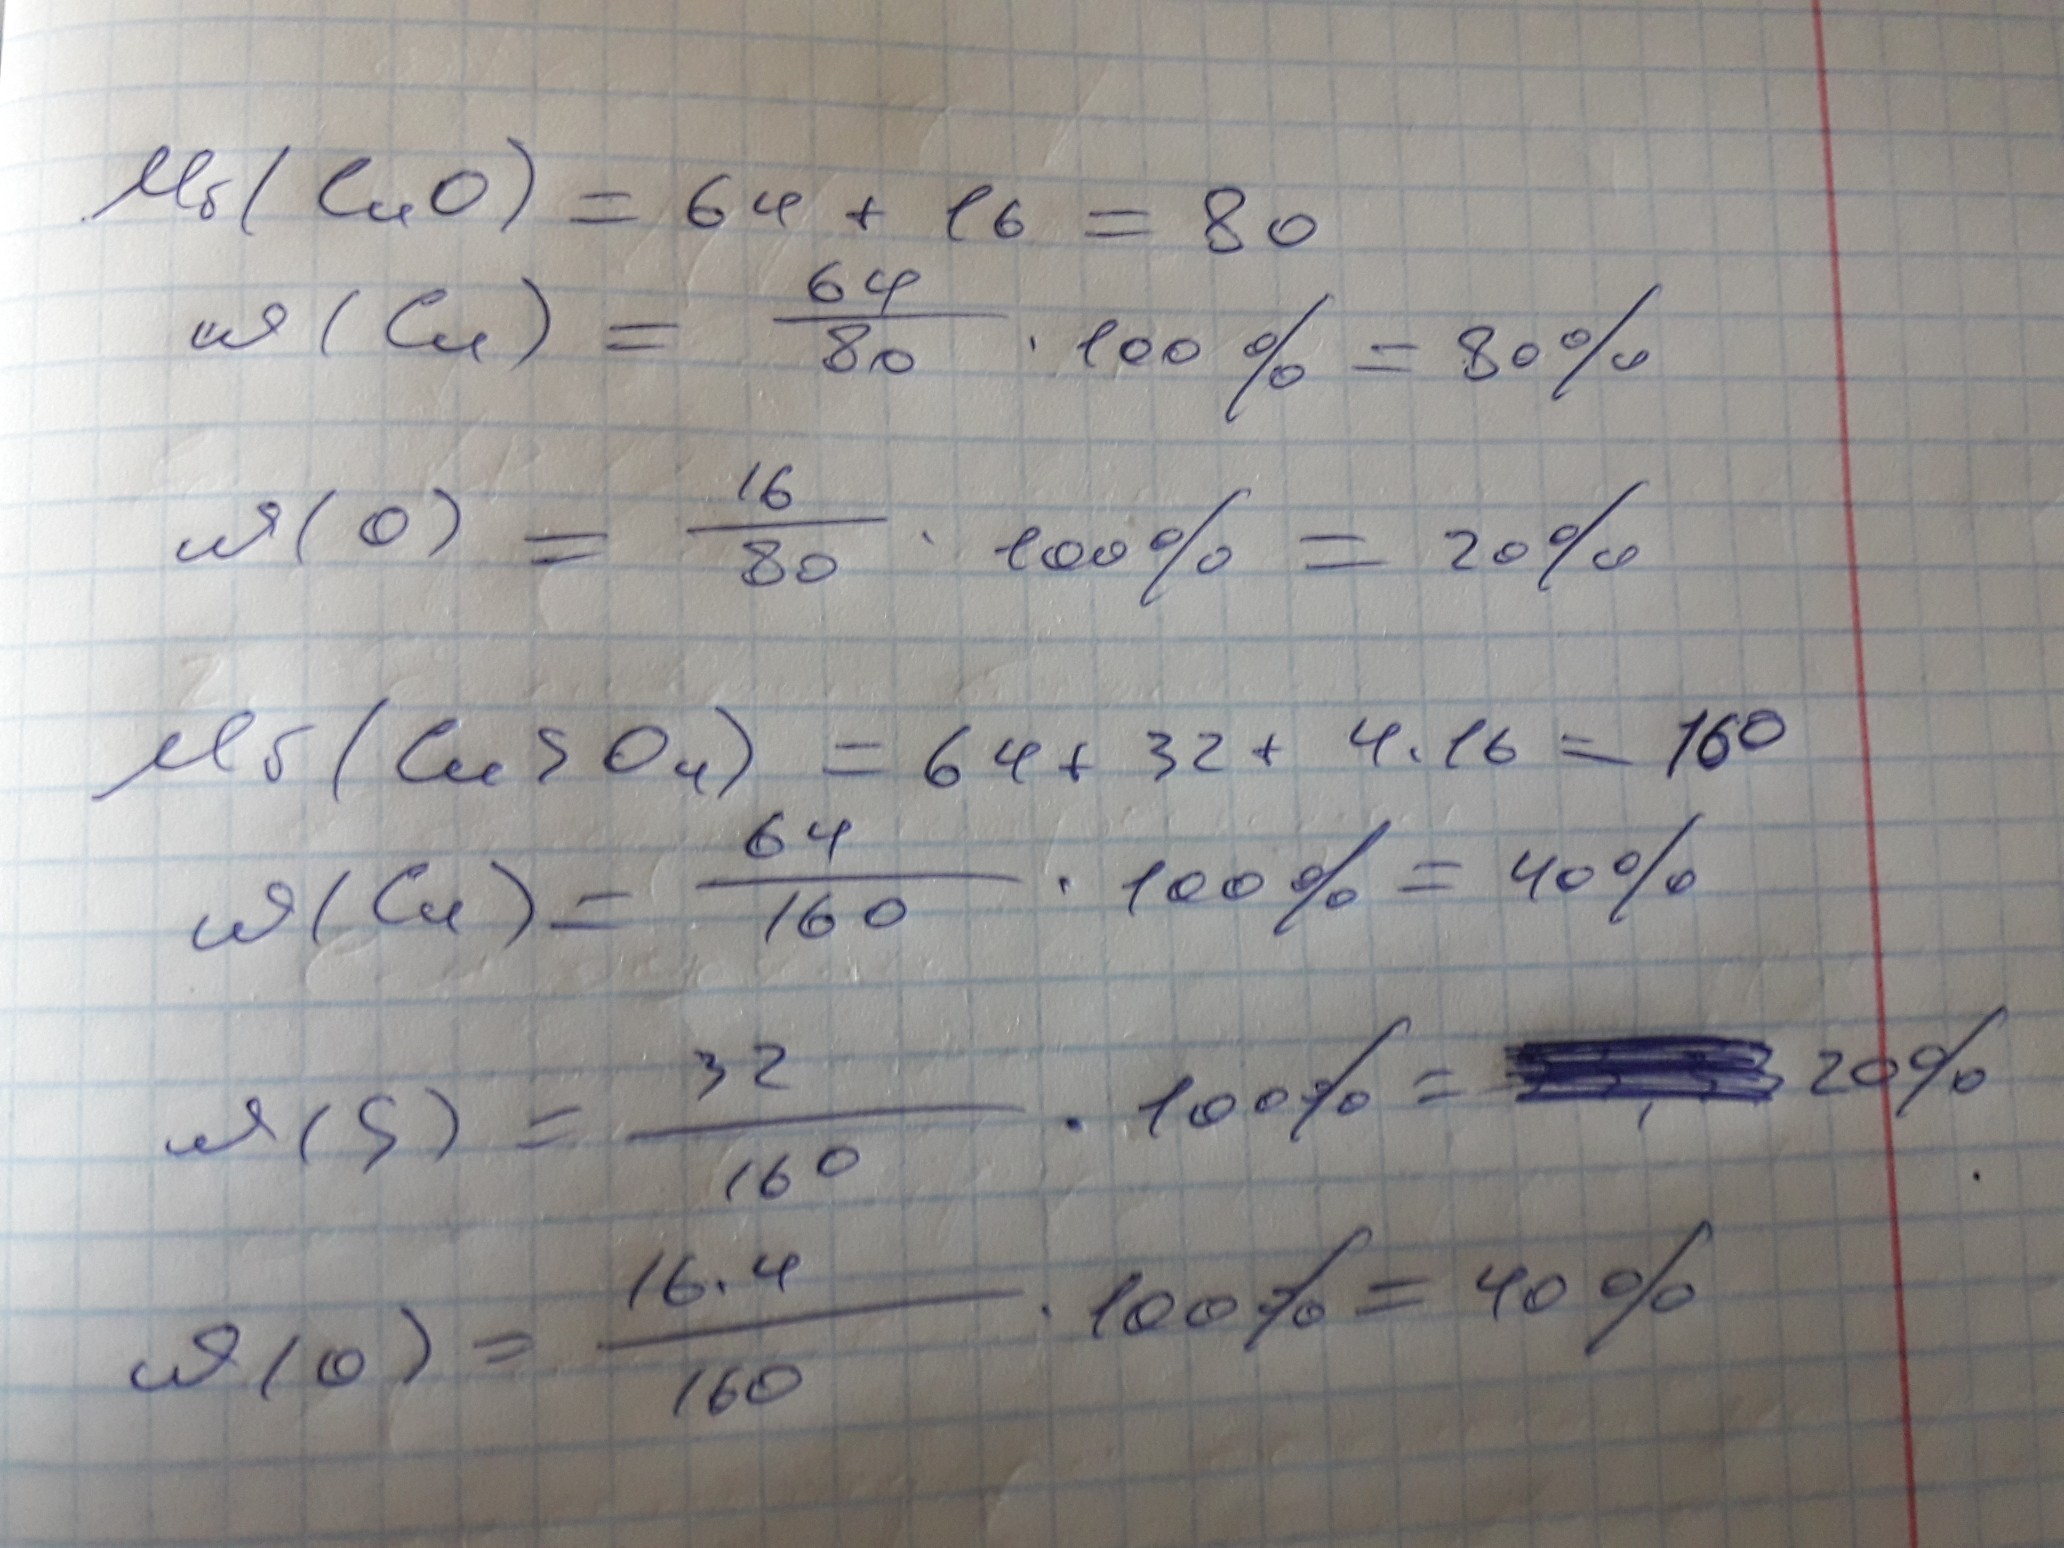 Mr(CuO) = 64 + 16 = 80
ω(Cu) = 64/80 · 100% = 80%
ω(O) = 16/80 · 100% = 20%
Mr(CuSO₄) = 64 + 32 + 4·16 = 160
ω(Cu) = 64/160 · 100% = 40%
ω(S) = 32/160 · 100% = 20%
ω(O) = 16·4/160 · 100% = 40%